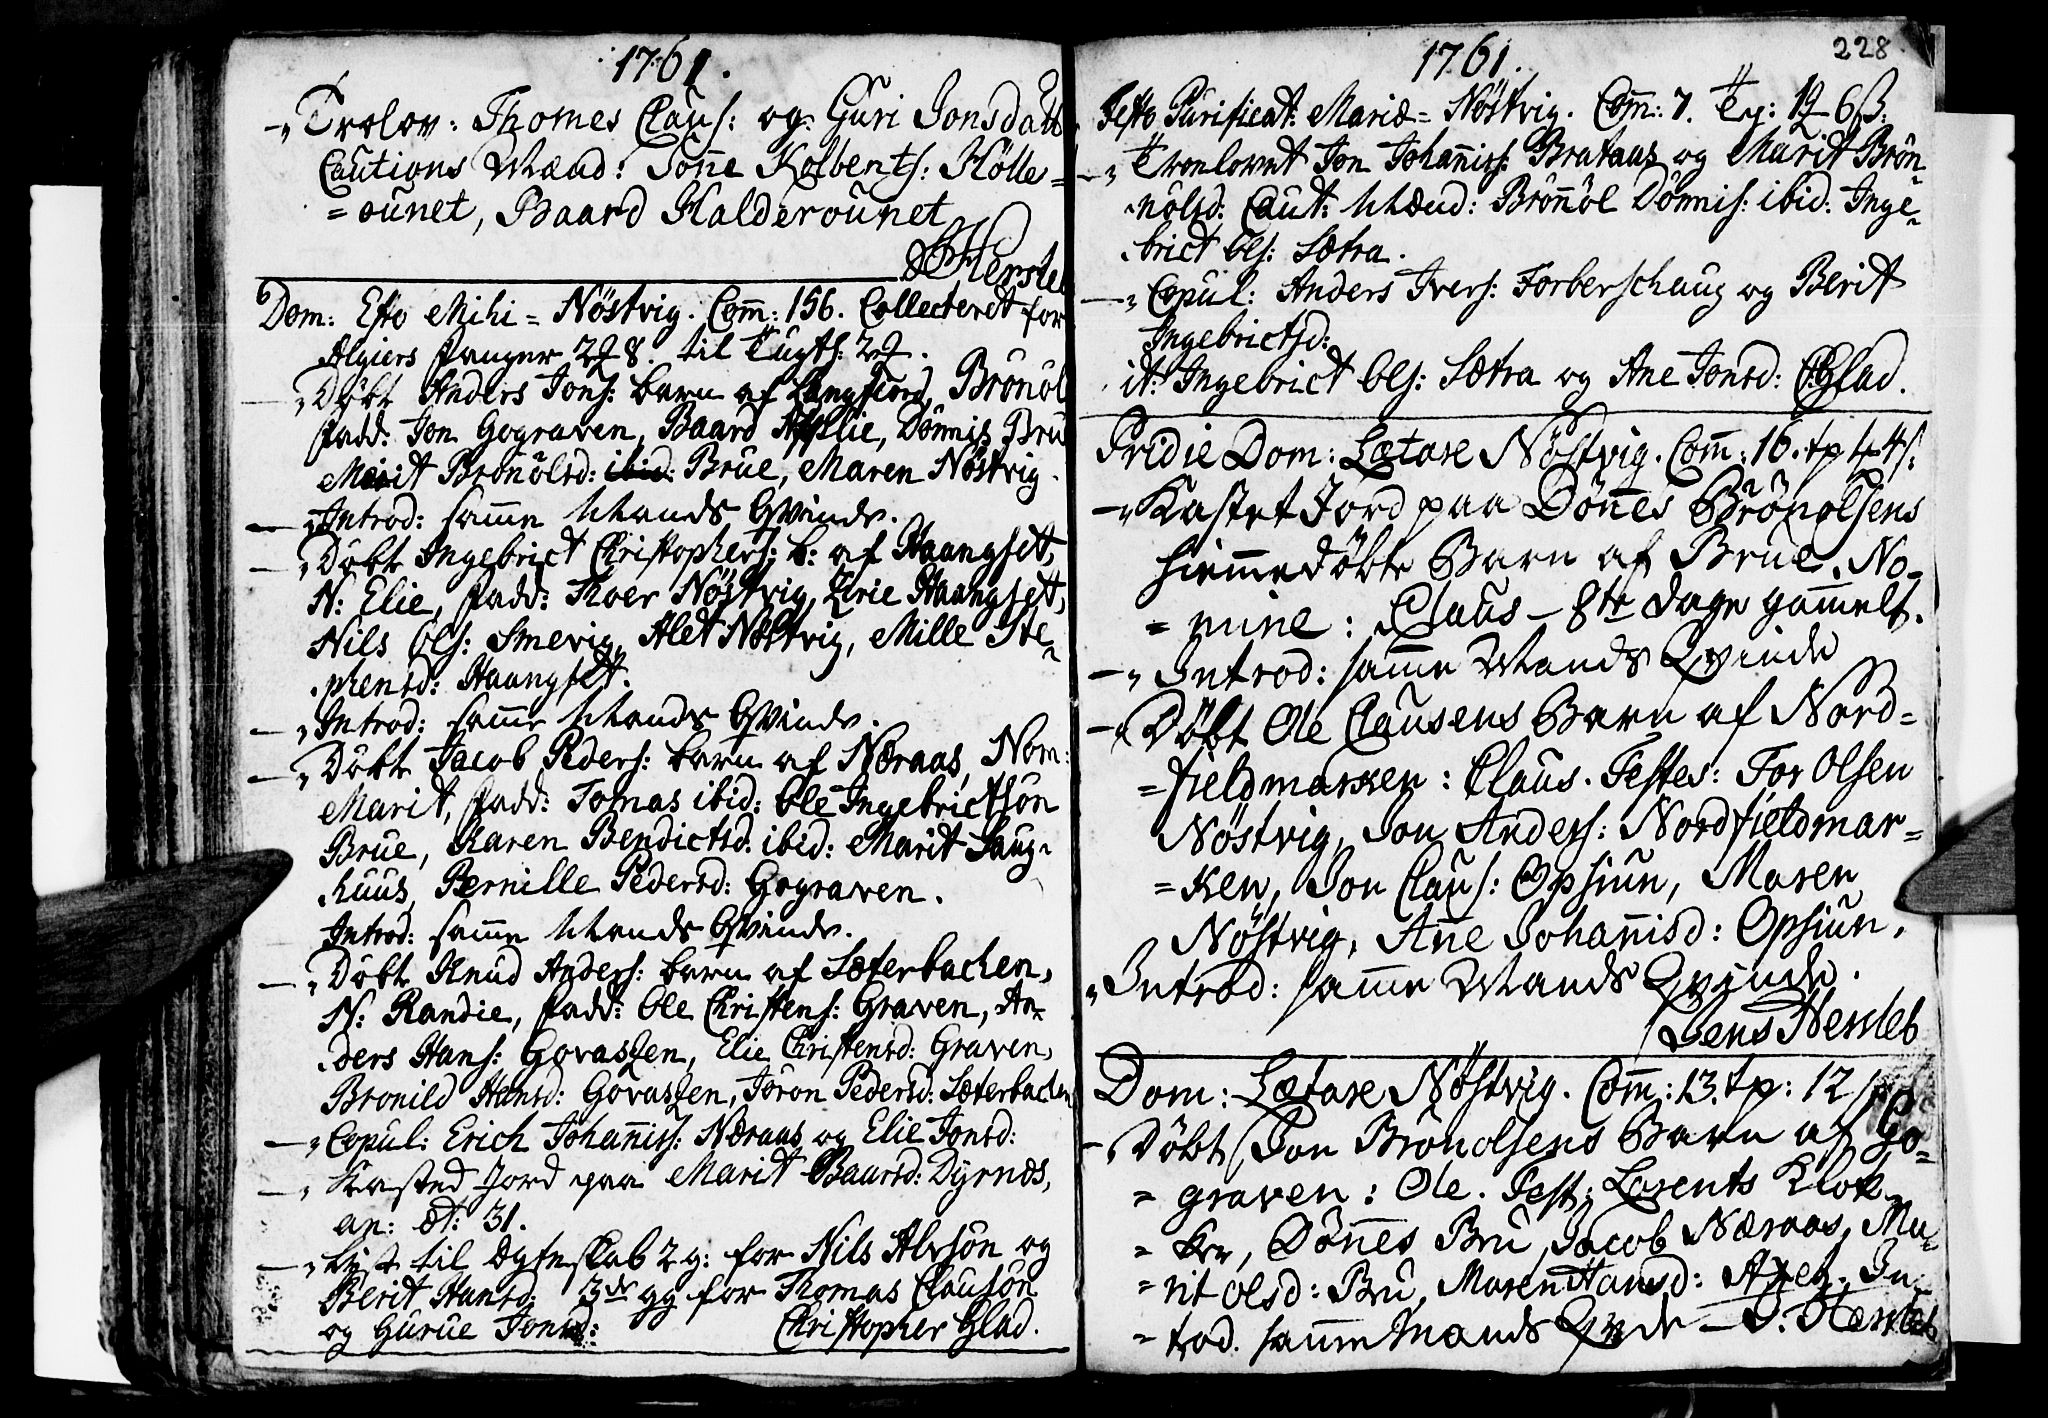 1761.
Trolov: Thomes Claus: og Guri Jonsdatt
Cautions Mænd: Tonne Kolbents: Hölle=
=ounet, Baard Halderounet
Hersleb
Dom: Esto Mihi = Nöstvig. Com: 156. Collecteret for
Algiers fanger 2 8. til Tugth: 2
Döbt Anders Jons: barn af Langfiord, Brönöl
fadd: Jon Gograven, Baard, Dönnis Bru
Marit Brönölsd: ibid: Brue, Maren Nöstvig.
Introd: samme Mands Qvinde.
Döbt Ingebrict Christophers: b: af Haangset,
N: Elie, fadd: Thoer Nöstvig, Zirie Haangset,
Nils Ols: Smevig, Alet Nöstvig, Mille Ste-
phensd: Haangset.
Introd: samme Mands Qvinde.
Döbt Jacob Peders: barn af Næraas, Nom:
Marit, fadd: Tomas ibid: Ole Ingebrictsön
Brue, Karen Bendictsd. ibid: Marit Saug-
huus, Pernille Pedersd: Gograven.
Introd: samme Mands Qvinde.
Döbt Knud Anders: barn af Sæterbachen,
N: Randie, fadd: Ole Christens: Graven, An-
ders Hans: Govassen, Elie Christensd: Graven,
Bronild Hansd: Govassen, Jöron Pedersd: Sæterbachen
Copul: Erich Johanniss: Næraas og Elie Jonsd:
Kasted Jord paa Marit Baarsd: Dyrnæs,
an: æt: 31.
Lyst til Ægteskab 2 g: for Nils Alvsön og
Berit Hansd: 3de gg for Thomas Clausön
og Gurue Jonsd: Christopher Glad.
1761.
228
Festo Purificat: Mariæ = Nöstvig. Com: 7. Tp: 12 6ß.
Troelovet Jon Johanniss: Brataas og Marit Brön
nölsd. Caut: Mænd: Brönnöl Dönnis: ibid: Inge-
brict Ols: Sætra.
Copul: Anders Ivers: Torberschaug og Berit
Ingebrictsd:
it: Ingebrict Ols: Sætra og Ane Jonsd: CGlad.
Pridie Dom: Lætare Nöstvig. Com: 16. tp 4s:
Kastet Jord paa Dönnes Brönolsens
hiemmedöbte Barn af Brue. No-
=mine: Claus – 8te Dage gammelt.
Introd: samme Mands Qvinde
Döbt Ole Clausens Barn af Nord=
=fieldmarken: Claus. Testes: Tor Olsen
Nöstvig, Jon Anders: Nordfieldmar=
=ken, Jon Claus: Opsiun, Maren
Nöstvig, Ane Johannisd: Opsiun.
Introd: samme Mands Qvinde.
Jens Hersleb
Dom: Lætare Nöstvig. Com: 13. tp: 12
Döbt Jon Brönolsens Barn af Go=
=graven: Ole. Test: Larents Klok
=ker, Dönnes Bru, Jacob Næraas, Ma=
=rit Olsd: Bru, Maren Hansd: In
=trod. samme Mands Qvde – J. Hersleb